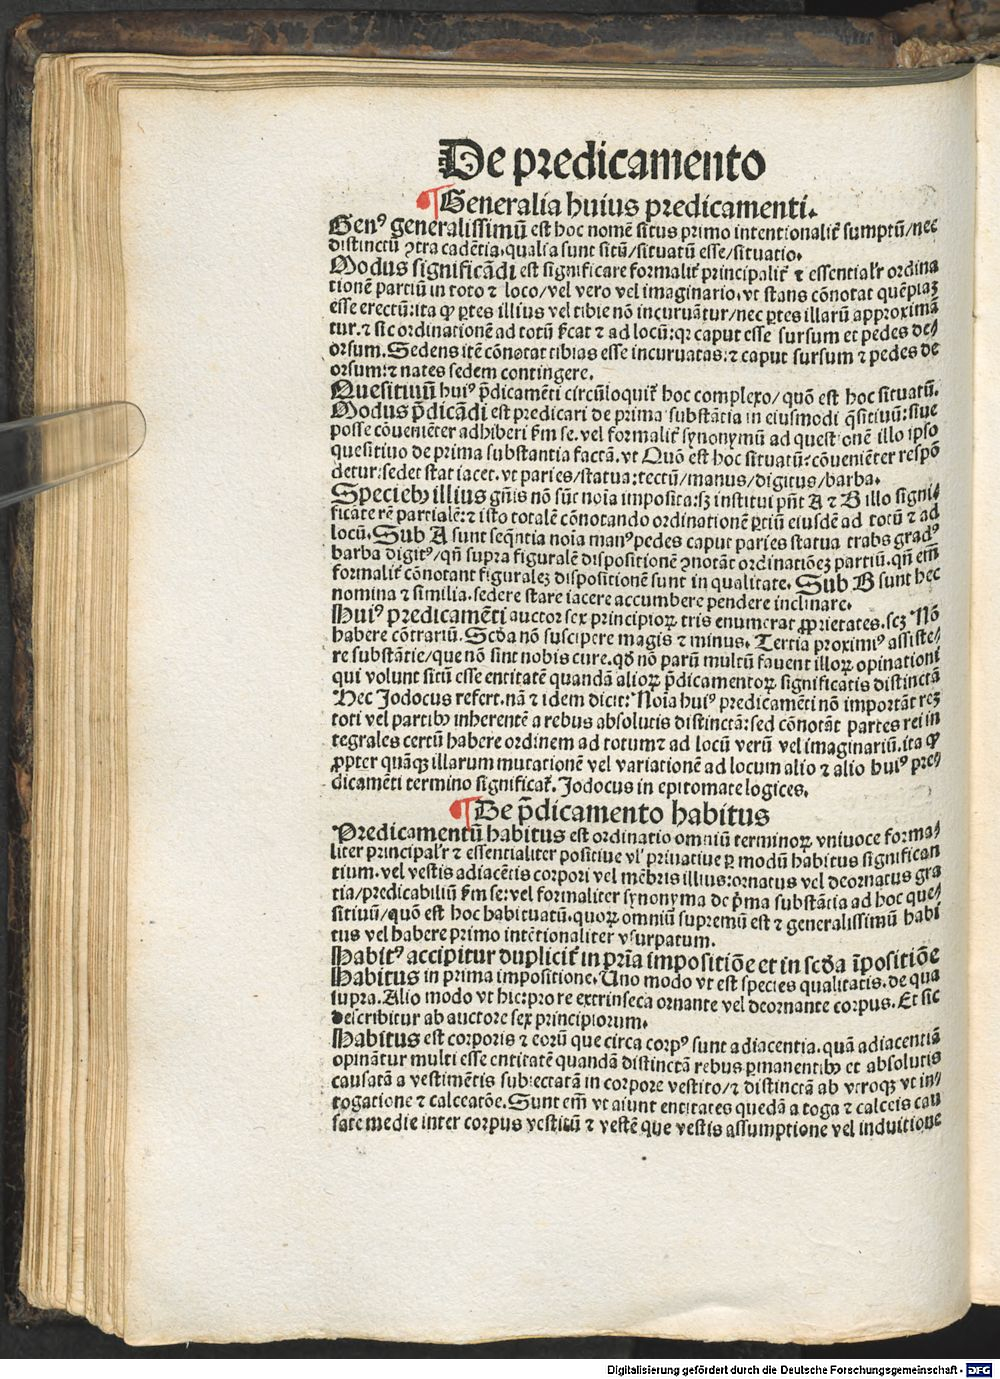 De predicamento
¶Generalia huius predicamenti.
Genꝰ generalissimū est hoc nomē situs primo intentionalit̄ sumptū/nec
distinctū ꝯtra cadētia.qualia sunt sitū/situatū esse/situatio.
Modus significādi est significare formalit̄ principalit̄ ⁊ essential'r ordina
tionē partiū in toto ⁊ loco/vel vero vel imaginario.vt stans cōnotat quēpiaꝫ
esse erectū:ita ꝙ ꝑtes illius vel tibie nōn incuruātur/nec ꝑtes illarū approximā
tur.⁊ sic ordinationē ad totū p̄cat ⁊ ad locū:qꝛ caput esse sursum et pedes de/
orsum.Sedens itē cōnotat tibias esse incuruatas:⁊ caput sursum ⁊ pedes de
orsum:⁊ nates sedem contingere.
Quesitiuū huiꝰ p̄dicamēti circūloquit̄ hoc complexo/ quō est hoc situatū.
Modus p̄dicādi est predicari de prima substātia in eiusmodi q̄sitiuū:siue
posse cōueniēter adhiberi ẜm se.vel formalit̄ synonymū ad questionē illo ipso
quesitiuo de prima substantia factā.vt Quō est hoc situatū:cōueniēter respō
detur:sedet stat iacet.vt paries/statua:tectū/manus/digitus/barba.
Specieb⁊ illius gn̄is nō sūt noīa imposita:sꝫ institui pn̄t A ⁊ B illo signi/
ficate rē partialē:⁊ isto totalē cōnotando ordinationē ꝑtiū eiusdē ad totū ⁊ ad
locū.Sub A sunt seq̄ntia noīa manꝰ pedes caput paries statua trabs gradꝰ
barba digitꝰ/qn̄ supra figuralē dispositionē ꝯnotāt ordinatiōeꝫ partiū.qn̄ em̄
formalit̄ cōnotant figuraleꝫ dispositionē sunt in qualitate. Sub B sunt hec
nomina ⁊ similia.sedere stare iacere accumbere pendere inclinare.
Huiꝰ predicamēti auctor sex principioꝝ tris enumerat ꝓprietates.scꝫ Nō
habere cōtrariū.Scd̄a nō suscipere magis ⁊ minus. Tertia proximiꝰ assiste/
re substātie/que nō sint nobis cure.qd̄ nō parū multū fauent illoꝝ opinationi
qui volunt sitū esse entitatē quandā alioꝝ p̄dicamentoꝝ significatis distinctā
Hec Jodocus refert.nā ⁊ idem dicit: Noīa huiꝰ predicamēti nō importāt reꝫ
toti vel partib⁊ inherentē a rebus absolutis distinctā:sed cōnotāt partes rei in
tegrales certū habere ordinem ad totum⁊ ad locū verū vel imaginariū.ita ꝙ
ꝓpter quāqꝫ illarum mutationē vel variationē ad locum alio ⁊ alio huiꝰ pre/
dicamēti termino significat̄. Jodocus in epitomate logices.
¶De p̄dicamento habitus
Predicamentū habitus est ordinatio omniū terminoꝝ vniuoce forma/
liter principal'r ⁊ essentialiter positiue vl' priuatiue ꝑ modū habitus significan
tium.vel vestis adiacētis corpori vel mēbris illius:ornatus vel deornatus gra
tia/predicabiliū ẜm se:vel formaliter synonyma de p̄ma substātia ad hoc que/
sitiuū/quō est hoc habituatū.quoꝝ omniū supremū est ⁊ generalissimū habi
tus vel habere primo intētionaliter vsurpatum.
Habitꝰ accipitur duplicit̄ in prīa impositiōe et in scd̄a īpositiōe
Habitus in prima impositione.Uno modo vt est species qualitatis.de qua
supra.Alio modo vt hic:pro re extrinseca ornante vel deornante corpus. Et sic
describitur ab auctore sex principiorum.
Habitus est corporis ⁊ eorū que circa corpꝰ sunt adiacentia.quā adiacentiā
opināntur multi esse entitatē quandā distinctā rebus ꝑmanentib⁊ et absolutis
causatā a vestimētis subiectatā in corpore vestito/⁊ distinctā ab vtroqꝫ vt in/
togatione ⁊ calceatōe.Sunt em̄ vt aiunt entitates quedā a toga ⁊ calceis cau
sate medie inter corpus vestitū ⁊ vestē que vestis assumptione vel induitione
Digitalisierung gefördert durch die Deutsche Forschungsgemeinschaft - DFG